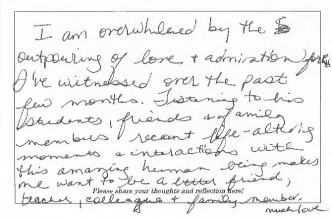 I am overwhelmed by the
outpouring of love + admiration for
I've witnessed over the past
few months. Listening to his
students, friends + family
members recant life-altering
moments + interactions with
this amazing human being makes
me want to be a better friend,
Please share your thoughts and reflection here!
teacher, colleague + family member.
much love